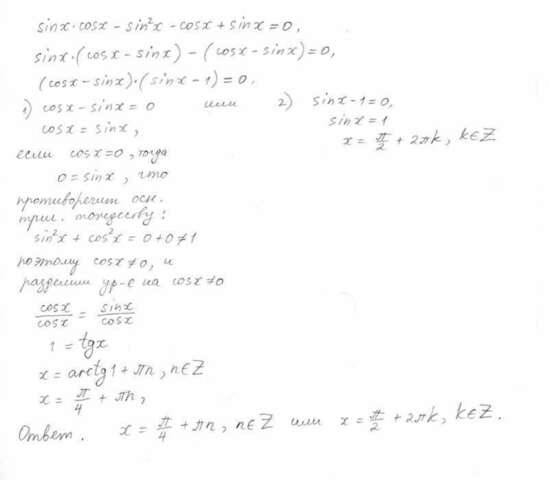 sinx·cosx − sin²x − cosx + sinx = 0,
sinx·(cosx − sinx) − (cosx − sinx) = 0,
(cosx − sinx)·(sinx − 1) = 0.
1) cosx − sinx = 0 или 2) sinx − 1 = 0,
cosx = sinx, sinx = 1
если cosx = 0, тогда x = π/2 + 2πk, k∈Z
0 = sinx, что
противоречит осн.
триг. тождеству:
sin²x + cos²x = 0 + 0 ≠ 1
поэтому cosx ≠ 0, и
разделим ур-е на cosx ≠ 0
cosx/cosx = sinx/cosx
1 = tgx
x = arctg1 + πn, n∈Z
x = π/4 + πn,
Ответ. x = π/4 + πn, n∈Z или x = π/2 + 2πk, k∈Z.